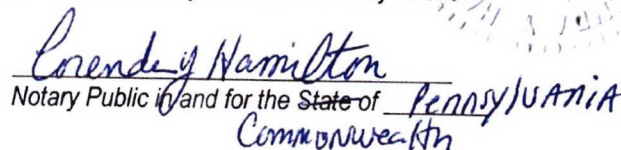 Hamilton
Notary Public in and for the State of Pennsylvania
Commonwealth